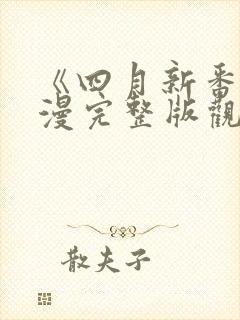 《四月新番
漫完整版觀
散夫子